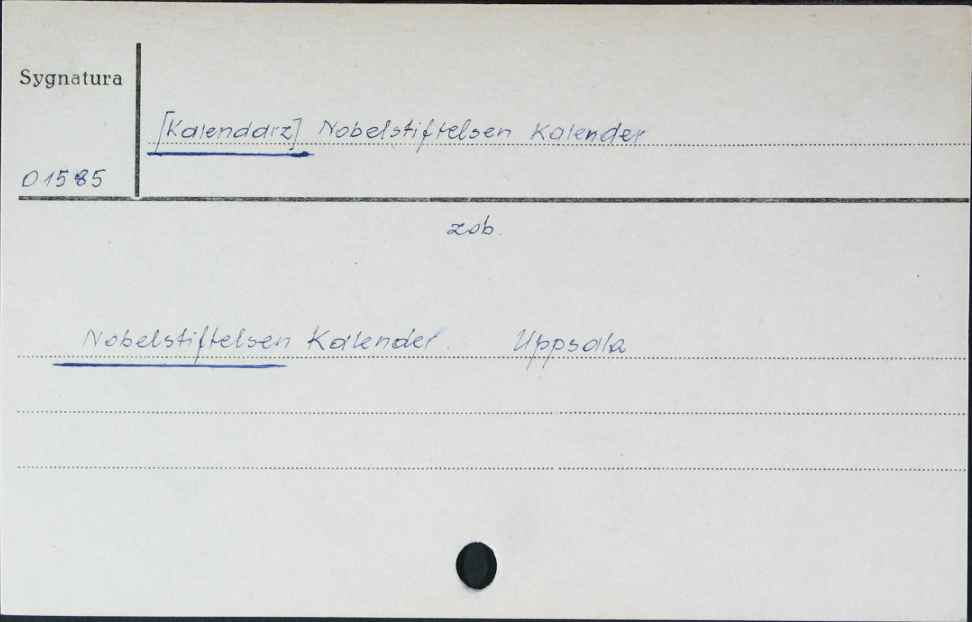 Sygnatura
[Kalendarz] Nobelstiftelsen Kalender
01585
zob.
Nobelstiftelsen Kalender. Uppsala